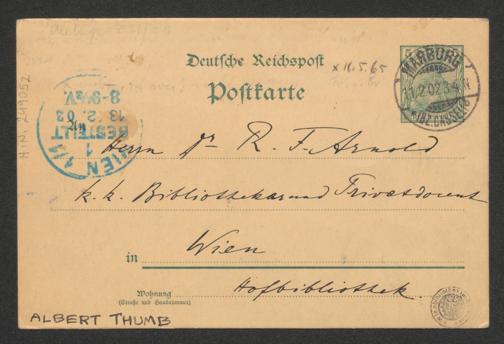 Deutsche Reichspost
Postkarte
x 18.5.65
MARBURG
11.2.02.3-4 N
* (BZ. CASSEL) a
WIEN 1/1
1
BESTELLT
13. 2. 02
8-9½V
H.I.N. 249052
Herrn Dr R. F. Arnold
k. k. Bibliothekar und Privatdocent
in Wien
Wohnung
(Straße und Hausnummer)
Hofbibliothek.
ALBERT THUMB